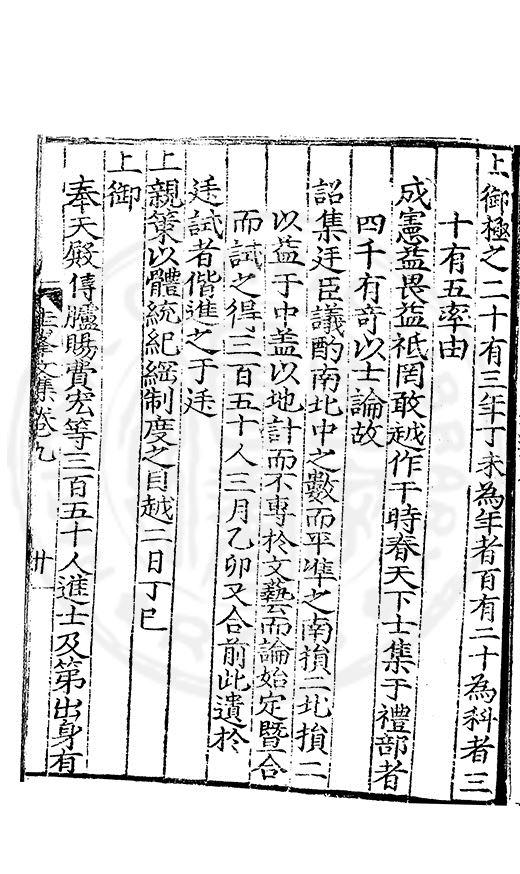 上御極之二十有三年丁未為年者百有二十為科者三
十有五率由
成憲益畏益祗罔敢越作于時春天下士集于禮部者
四千有奇以士論故
詔集廷臣議酌南北中之數而平準之南損二北損二
以益于中盖以地計而不專於文藝而論始定暨合
而試之得三百五十人三月乙卯又合前此遺於
廷試者偕進之于廷
上親策以體統紀綱制度之目越二日丁巳
上御
奉天殿傳臚賜費宏等三百五十人進士及第出身有
文集卷九
廿